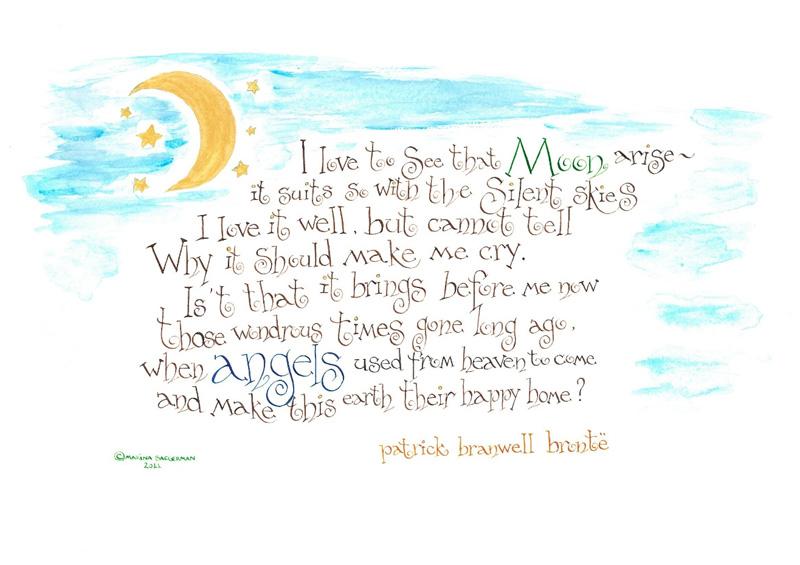 I love to See that Moon arise ~
it suits so with the Silent skies
I love it well, but cannot tell
Why it should make me cry.
Is't that it brings before me now
those wondrous times gone long ago,
when angels used from heaven to come
and make this earth their happy home?
patrick branwell brontë
© MARINA SAEGERMAN
2011